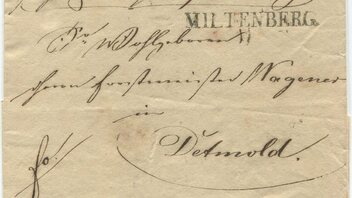 MILTENBERG
Sr Wohlgeboren
Herrn Forstmeister Wagener
in
Detmold.